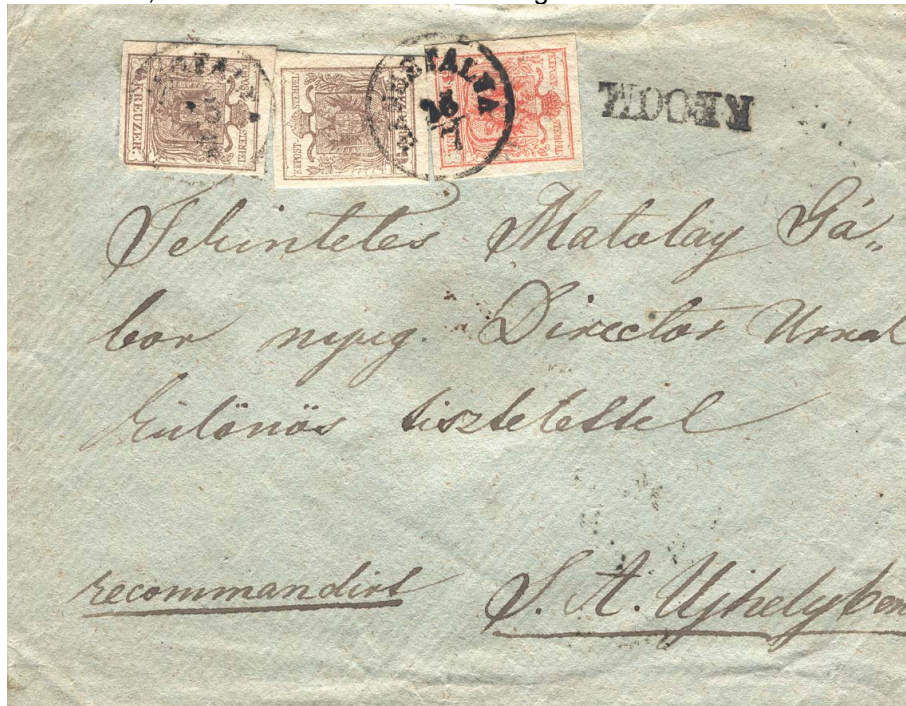 KREUZER.
RECOM
Tekintetes Matolay Gá„
bor nyug. Director Urnak
különös tisztelettel
recommandirt
S. A. Ujhelyben